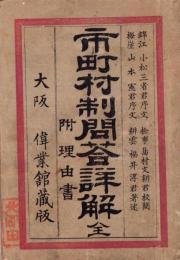 錦江 小松三省君序文 松亭 島村文耕君校閲
梅崖 山本憲君序文 耕雲 福井淳君著述
市町村制問答詳解 全
附理由書
大阪 偉業館蔵版